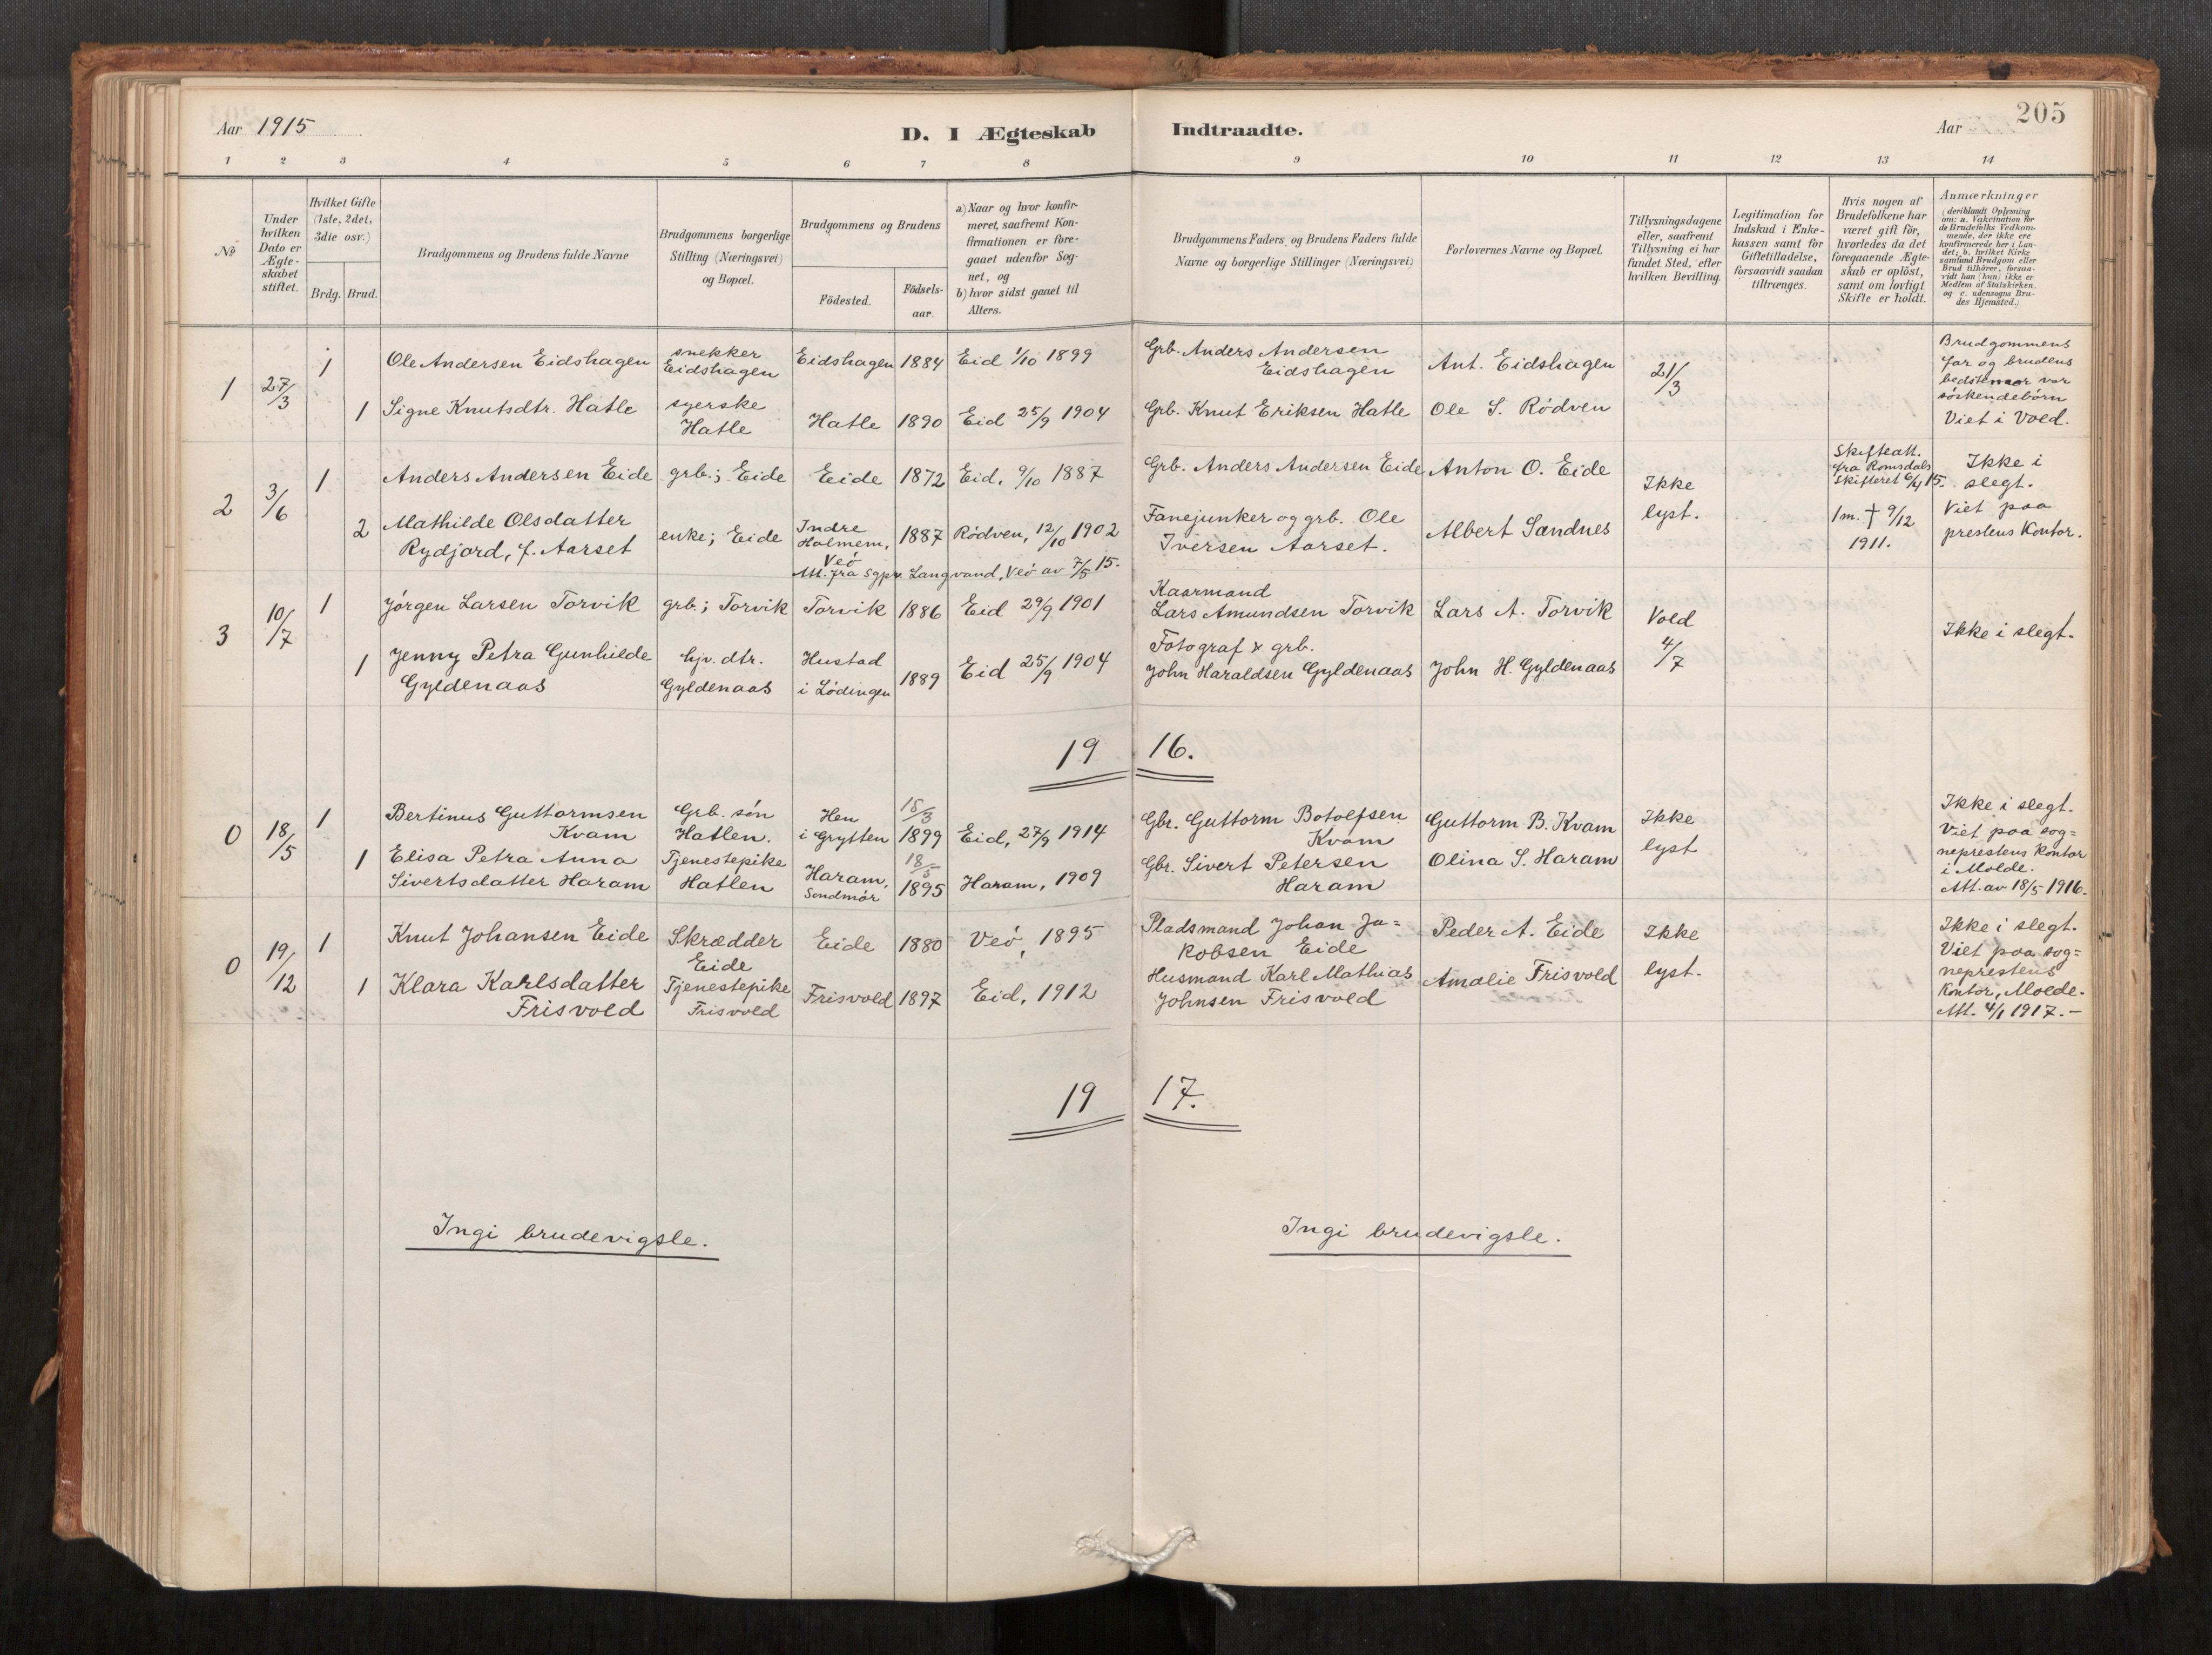 Aar 1915
D. I Ægteskab
Indtraadte.
Aar
205
1 2 3 4 5 6 7 8 9 10 11 12 13 14
№
Under hvilken Dato er Ægteskabet stiftet.
Hvilket Gifte (1ste, 2det, 3die osv.)
Brdg. Brud.
Brudgommens og Brudens fulde Navne
Brudgommens borgerlige Stilling (Næringsvei) og Bopæl.
Brudgommens og Brudens
Födested.
Födselsaar.
a) Naar og hvor konfirmeret, saafremt Konfirmationen er foregaaet udenfor Sognet, og
b) hvor sidst gaaet til Alters.
Brudgommens Faders, og Brudens Faders fulde Navne og borgerlige Stillinger (Næringsvei)
Forlovernes Navne og Bopæl.
Tillysningsdagene eller, saafremt Tillysning ei har fundet Sted, efter hvilken Bevilling.
Legitimation for Indskud i Enkekassen samt for Giftetilladelse, forsaavidt saadan tiltrænges.
Hvis nogen af Brudefolkene har været gift för, hvorledes da det foregaaende Ægteskab er oplöst, samt om lovligt Skifte er holdt.
Anmærkninger
(deriblandt Oplysning om: a. Vakcination for de Brudefolks Vedkommende, der ikke ere konfirmerede her i Landet; b. hvilket Kirkesamfund Brudgom eller Brud tilhörer, forsaavidt han (hun) ikke er Medlem af Statskirken. og c. udensogns Brudes Hjemsted.)
1 27/3 1 Ole Andersen Eidshagen snekker Eidshagen Eidshagen 1884 Eid 1/10 1899 Grb. Anders Andersen Eidshagen Ant. Eidshagen 21/3
1 Signe Knutsdtr. Hatle syerske Hatle Hatle 1890 Eid 25/9 1904 Grb. Knut Eriksen Hatle Ole S. Rødven
Brudgommens
far og brudens
bedstemor var
söskendebörn
Viet i Vold.
2 3/6 1 Anders Andersen Eide grb.; Eide Eide 1872 Eid. 9/10 1887 Grb. Anders Andersen Eide Anton O. Eide Ikke lyst.
2 Mathilde Olsdatter Rydjord, f. Aarset enke; Eide Indre Holmem, Veö 1887 Rødven, 12/10 1902 Fanejunker og grb. Ole Iversen Aarset. Albert Sandnes
Att. fra sgpr. Langvand, Veö av 7/5 15.
Skifteatt.
fra Romsdals
Skifteret 6/4 15.
1 m. † 9/12
1911.
Ikke i
slegt.
Viet paa
prestens Kontor.
3 10/7 1 Jörgen Larsen Torvik grb.; Torvik Torvik 1886 Eid 29/9 1901 Kaarmand Lars Amundsen Torvik Lars A. Torvik Vold 4/7 Ikke i slegt.
1 Jenny Petra Gunhilde Gyldenaas hjv. dtr. Gyldenaas Hustad i Lödingen 1889 Eid 25/9 1904 Fotograf & grb. John Haraldsen Gyldenaas John H. Gyldenaas
19 16.
0 18/5 1 Bertinus Guttormsen Kvam Grb. sön Hatlen. Hen i Grytten 15/3 1899 Eid, 27/9 1914 Gbr. Guttorm Botolfsen Kvam Guttorm B. Kvam Ikke lyst
1 Elisa Petra Anna Sivertsdatter Haram Tjenestepike Hatlen Haram, Söndmör 18/5 1895 Haram, 1909 Gbr. Sivert Petersen Haram Olina S. Haram
Ikke i slegt.
Viet paa sog=
neprestens Kontor
i Molde.
Att. av 18/5 1916.
0 19/12 1 Knut Johansen Eide Skrædder Eide Eide 1880 Veö, 1895 Pladsmand Johan Ja=kobsen Eide Peder A. Eide Ikke lyst.
1 Klara Karlsdatter Frisvold Tjenestepike Frisvold Frisvold 1897 Eid, 1912 Husmand Karl Mathias Johnsen Frisvold Amalie Frisvold
Ikke i slegt.
Viet paa sog=
neprestens
Kontor, Molde.
Att. 4/1 1917.—
19 17.
Ingi brudevigsle.
Ingi brudevigsle.